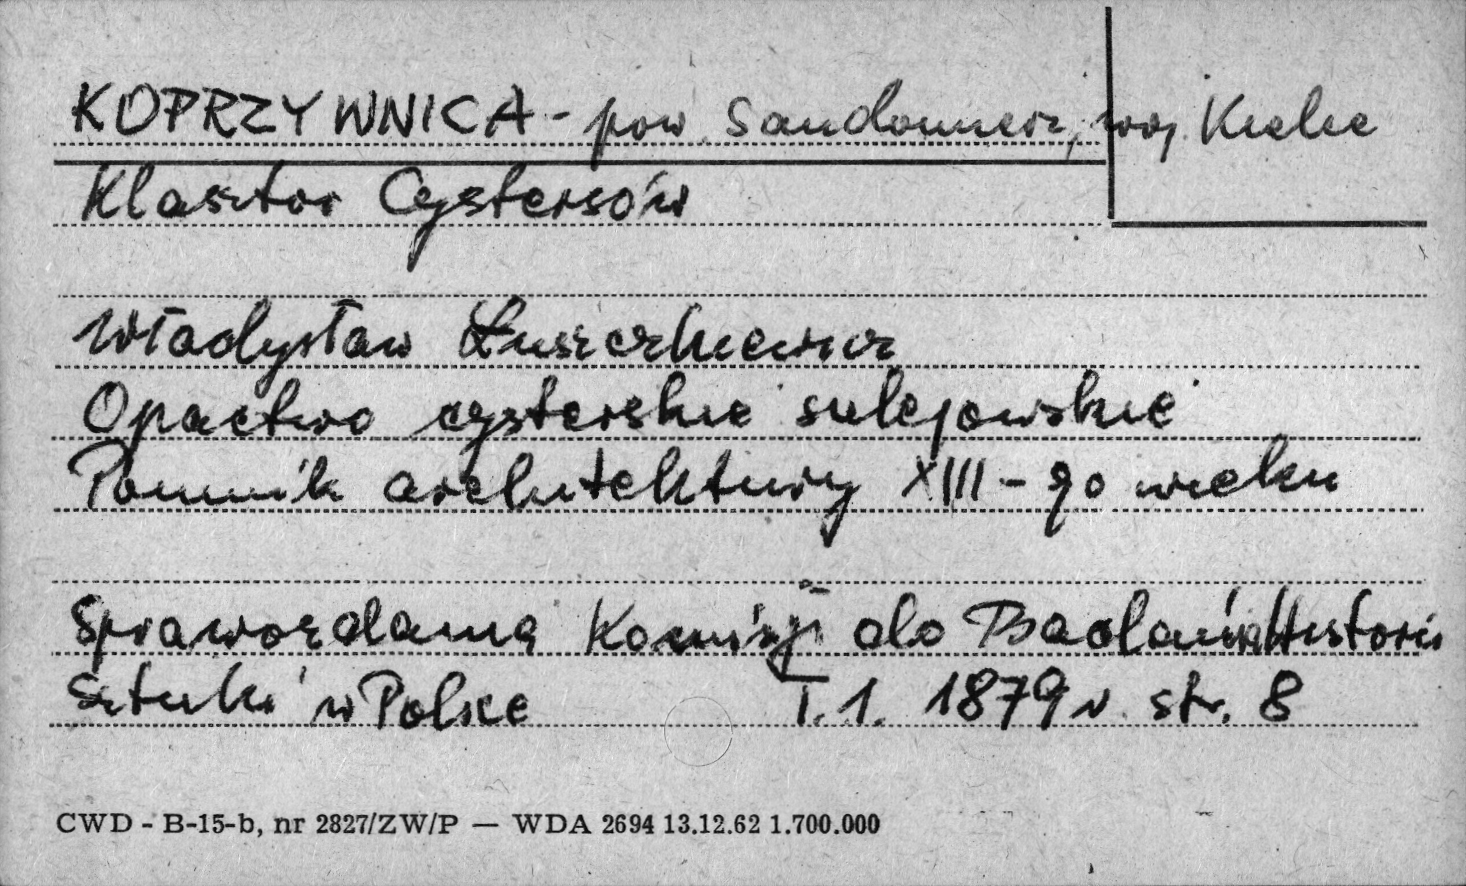 KOPRZYWNICA - pow. Sandomierz, woj. Kielce
Klasztor Cystersów
Władysław Łuszczkiewicz
Opactwo cysterskie sulejowskie
Pomnik architektury XIII-go wieku
Sprawozdania Komisji do Badania Historii
Sztuki w Polsce T. 1. 1879 r. str. 8
CWD - B-15-b, nr 2827/ZW/P — WDA 2694 13.12.62 1.700.000